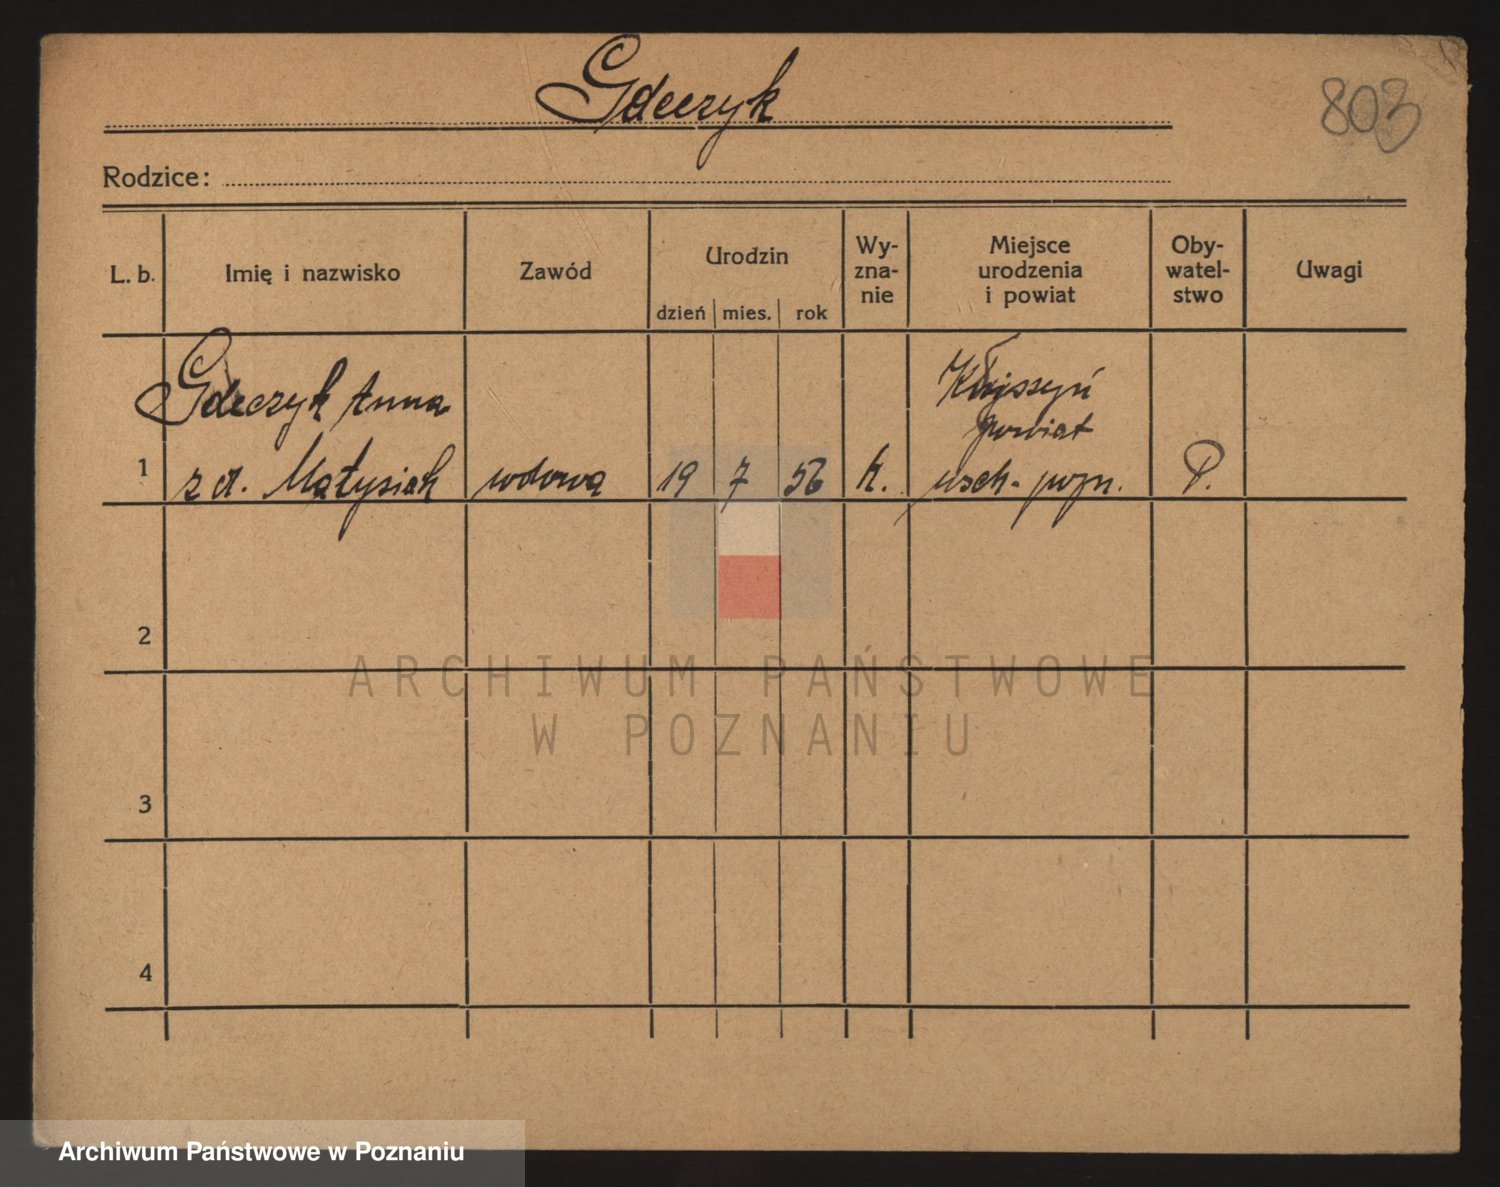 Gdeczyk
803
Rodzice:
L. b. Imię i nazwisko Zawód Urodzin dzień mies. rok Wy-zna-nie Miejsce urodzenia i powiat Oby-watel-stwo Uwagi
Gdeczyk Anna
powiat
1 z d. Matysiak wdowa 19 7 56 k. wsch. pozn. P.
2
ARCHIWUM PAŃSTWOWE
W POZNANIU
3
4
Archiwum Państwowe w Poznaniu